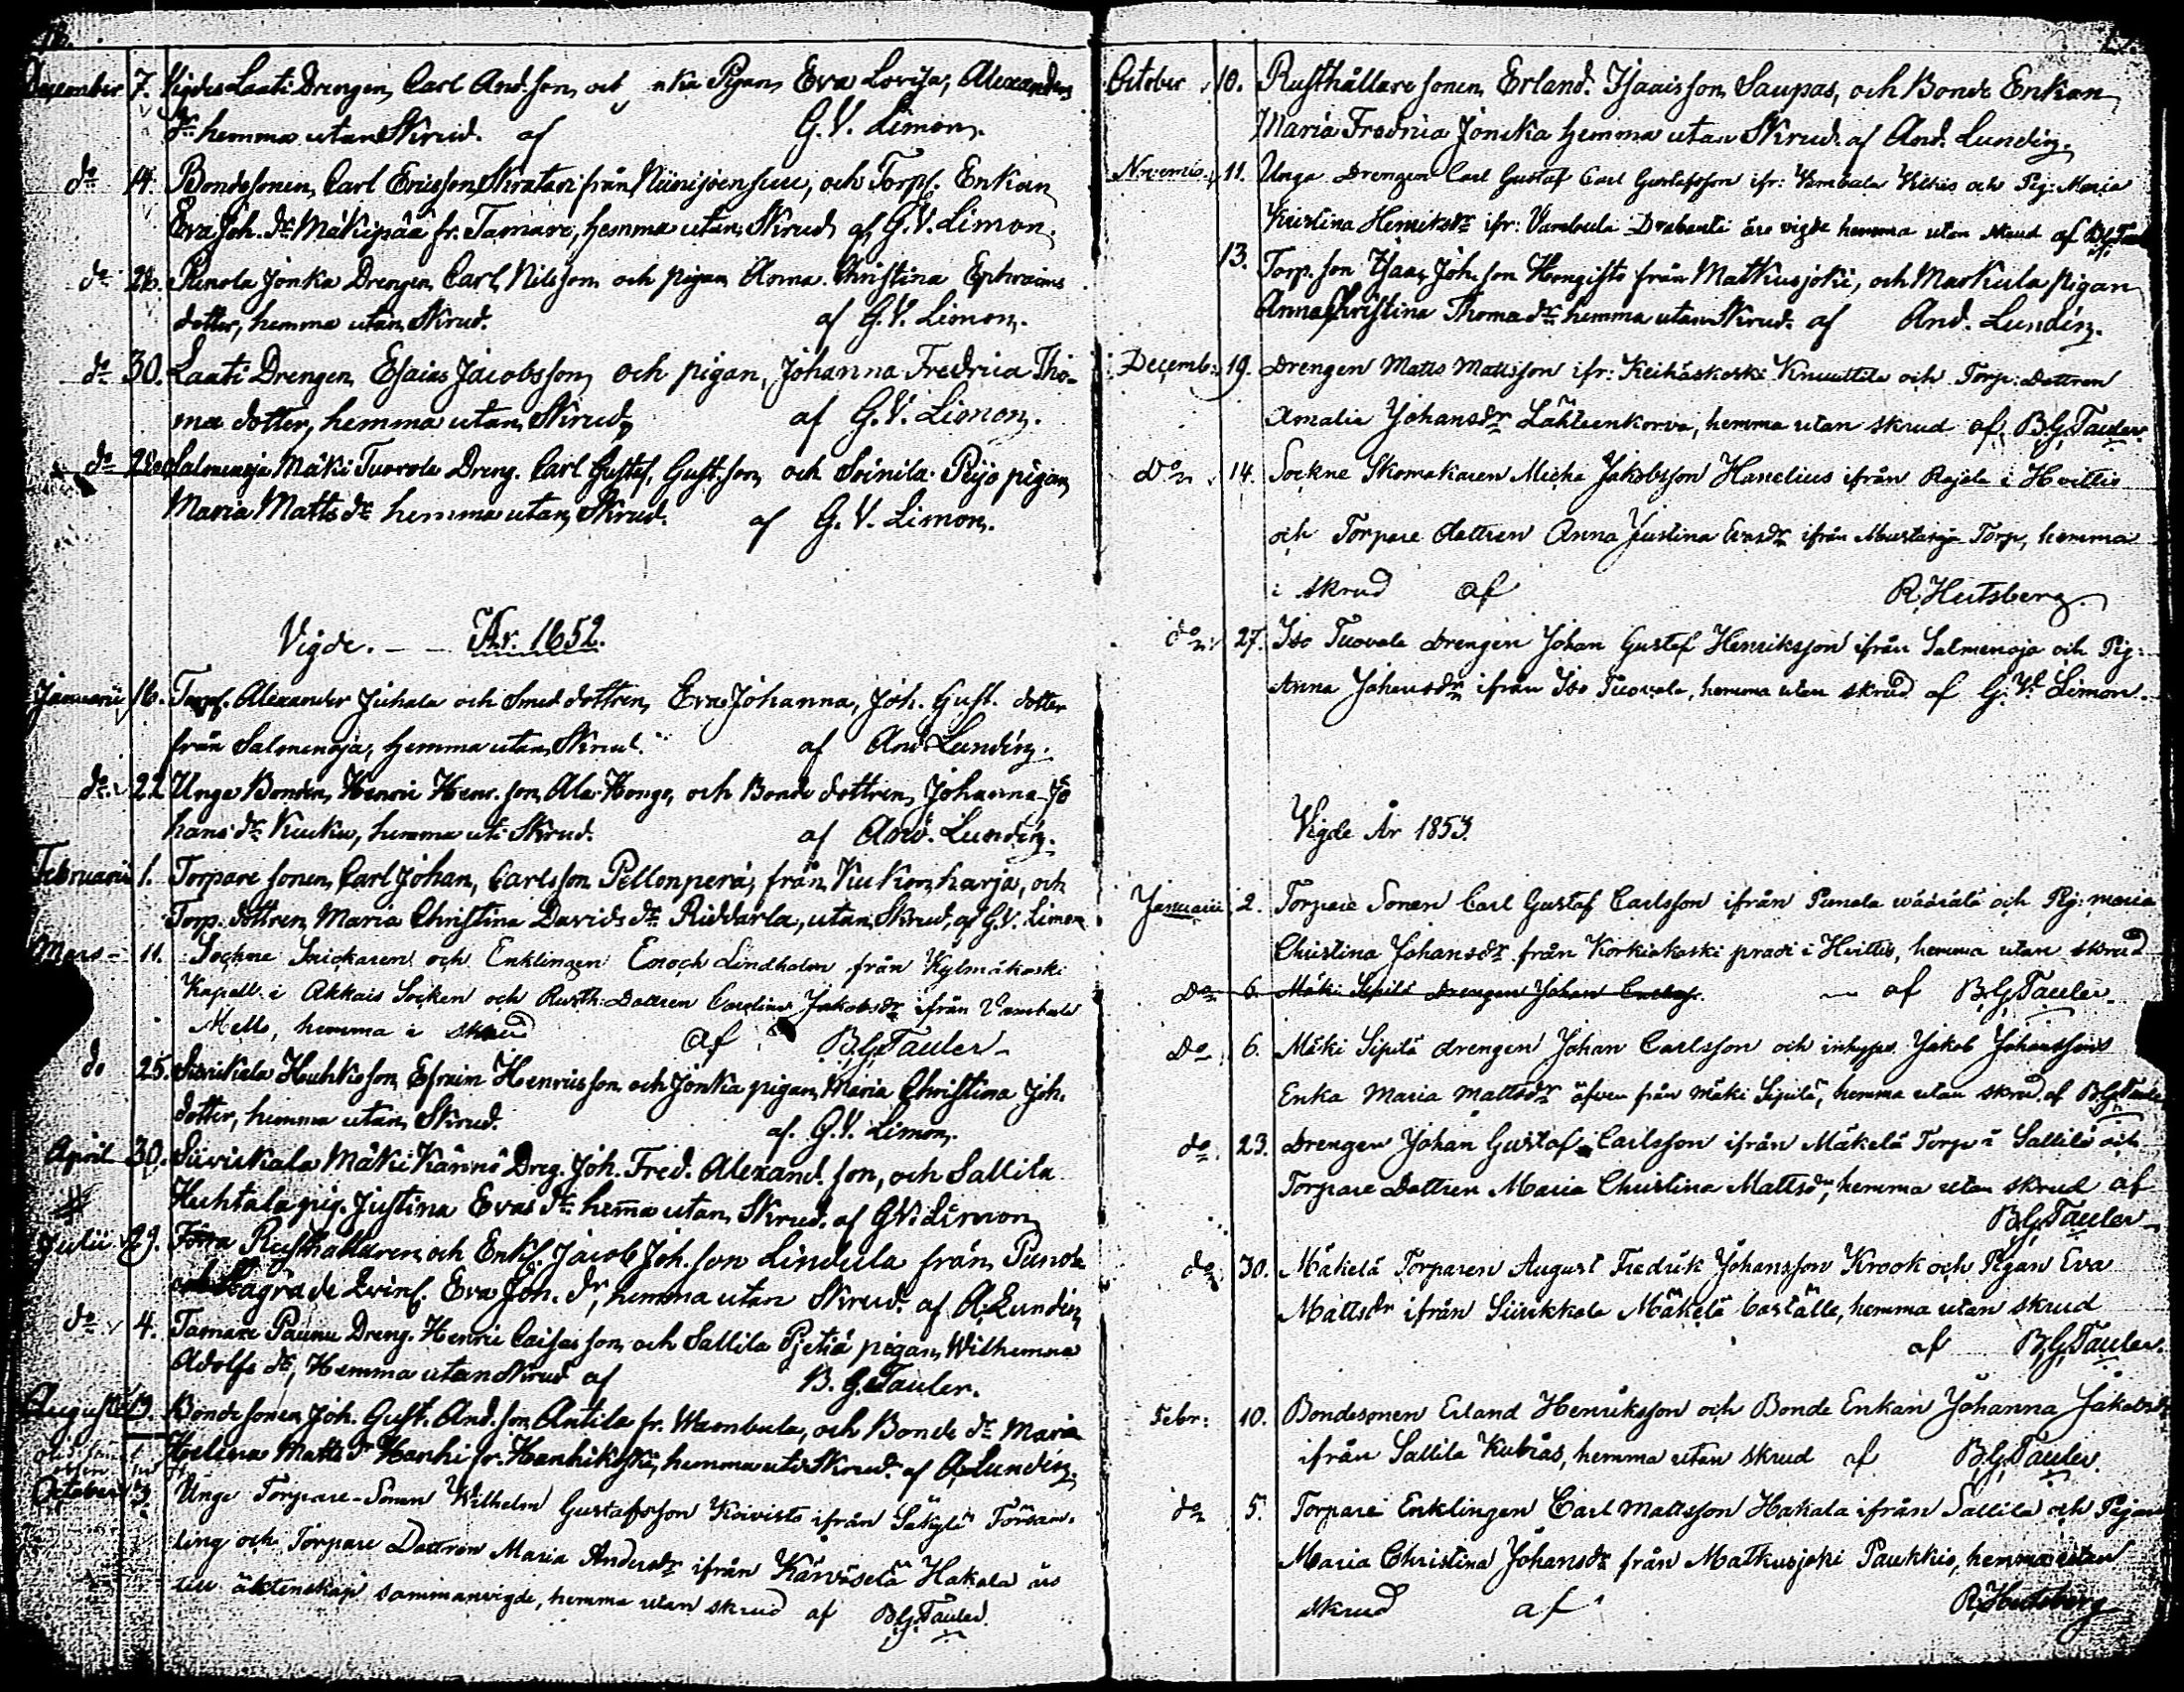 December 7. Vigdes Laati Drengen, Carl And.son, och Pigan Eva Lovisa, Alexanders
dr hemma utan Skrud. af G. V. Limon.
do 14. Bondesonen, Carl Ericsson Skratari från Niinijoensuu, och Torp. Enkan
Eva Joh. dr Mäkipää fr. Tamare, hemma utan Skrud, af G. V. Limon.
do 26. Punola Jonka Drengen Carl Nilsson och pigan Anna Christina Ephraims
dotter, hemma utan Skrud. af G. V. Limon.
do 30. Laati Drengen, Esaias Jacobsson och pigan, Johanna Fredrica Tho-
ma dotter, hemma utan Skrud, af G. V. Limon.
do Salmenoja Mäki Tuovola Dreng. Carl Gustaf, Gust.son, och Soinila Reijo pigan
Maria Matts dr hemma utan Skrud. af G. V. Limon.
Vigde. - - År. 1852.
Januarii 16. Torp. Alexander Juhala och Smed dottren, Eva Johanna, Joh. Gust. dotter
från Salmenoja, hemma utan Skrud. af And. Lundén.
do 22 Unge Bonden, Henric Henr.son, Ala-Hongo, och Bonde dottren, Johanna Jo
hans dr Kuuku, hemma uti Skrud. af And. Lundén.
Februarii 1. Torpare sonen, Carl Johan, Carlsson Pellonperä, från Kuukonharja, och
Torp. dottren, Maria Christina Davids dr Riddarla, utan Skrud, af G. V. Limon
Mars - 11. Sockne Snickaren och Enklingen Enoch Lindholm från Kylmäkoski
Kapell i Akkais Socken och Rusth: Dottren Carolina Jakobsdr ifrån Vambula
Mello, hemma i skrud af B. G. Tauler
do 25. Huhko son, Efraim Henricsson och Jonka pigan, Maria Christina Joh.
dotter, hemma utan Skrud. af. G. V. Limon.
April 30. Suriskala Mäki Kännö Dreg. Joh. Fred. Alexand. son, och Sallila
Huhtala pig. Justina Evas dr hemma utan Skrud. af G. V. Limon
Julii 29. Förra Rusthållaren och Enkl. Jacob Joh.son Lindula från Punola
och Lägrade Qvinf. Eva Joh. dr, hemma utan Skrud. af A. Lundén,
do 4. Tamare Paunu Dreng. Henric son och Sallila Pjetiä pigan, Wilhemina
Adolfs dr, Hemma utan Skrud af B. G. Tauler.
Augusti 19. Bondesonen Joh. Gust. And.son Antila fr. Wambula, och Bonde dr Maria
Helena Matts dr Hanhi fr. Hanhikoski, hemma uti Skrud. af A. Lundén.
October 3. Unge Torpare-Sonen Wilhelm Gustafsson Koivisto ifrån Säkylä Församl.
ling och Torpare Dottren Maria Andersdr ifrån Karviselä Hakala äro
till äktenskap sammanvigde, hemma utan skrud af B. G. Tauler
October 10. Rusthållare sonen, Erland. Isaacsson Saupas, och Bonde Enkan
Maria Fredrica Joncka hemma utan Skrud. af And. Lundén.
11. Unge Drengen Carl Gustaf Carl Gustafsson ifr: Vambula och Pig: Maria
Kristina Henriksdr ifr: Vambula Drabanti äro vigde hemma utan skrud af B. G. Tauler
13. Torp. son Isaac Joh.son Hongisto från Matkusjoki, och Markula pigan
Anna Christina Thoma dr hemma utan Skrud. af And. Lundén.
Decemb: 19. Drengen Matts Mattsson ifr: Keihäskoski Knuuttila och Torp: Dottren
Amalia Johansdr Lähteenkorva, hemma utan skrud af B. G. Tauler.
Do 14. Sockne Skomakaren Micha Jakobsson Hanelius ifrån Rajala i Hvittis
och Torpare dottren Anna Justina Evasdr ifrån Mustaoja Torp, hemma
i skrud af R. Heitsberg.
do 27. Iso Tuovola drengen Johan Gustaf Henriksson ifrån Salmenoja och Pig:
Anna Johansdr ifrån Iso Tuovola, hemma utan skrud af G. V. Limon.
Vigde År 1853.
Januarii 2. Torpare Sonen Carl Gustaf Carlsson ifrån Punola och Pig: Maria
Christina Johansdr från Korkiakoski i Hvittis, hemma utan skrud
Do 6. Mäki Sipilä drengen Johan Carlss. — af B. G. Tauler.
Do 6. Mäki Sipilä drengen Johan Carlsson och inhyses Jakob Johanssons
Enka Maria Mattsdr äfven från Mäki Sipilä, hemma utan skrud, af B. G. Tauler
do 23. Drengen Johan Gustaf Carlsson ifrån Mäkelä Torp i Sallila och
Torpare Dottren Maria Christina Mattsdr, hemma utan skrud af
B. G. Tauler
do 30. Mäkelä Torparen August Fredrik Johansson Krook och Pigan Eva
Mattsdr ifrån Suukkala Mäkelä hemma utan skrud
af B. G. Tauler.
Febr: 10. Bondesonen Erland Henriksson och Bonde Enkan Johanna Jakobsdr
ifrån Sallila Kubias, hemma utan skrud af B. G. Tauler.
do 5. Torpare Enklingen Carl Mattsson Hakala ifrån Sallila och Pigan
Maria Christina Johansdr från Matkusjoki Paukkio, hemma utan
skrud af R. Heitsberg